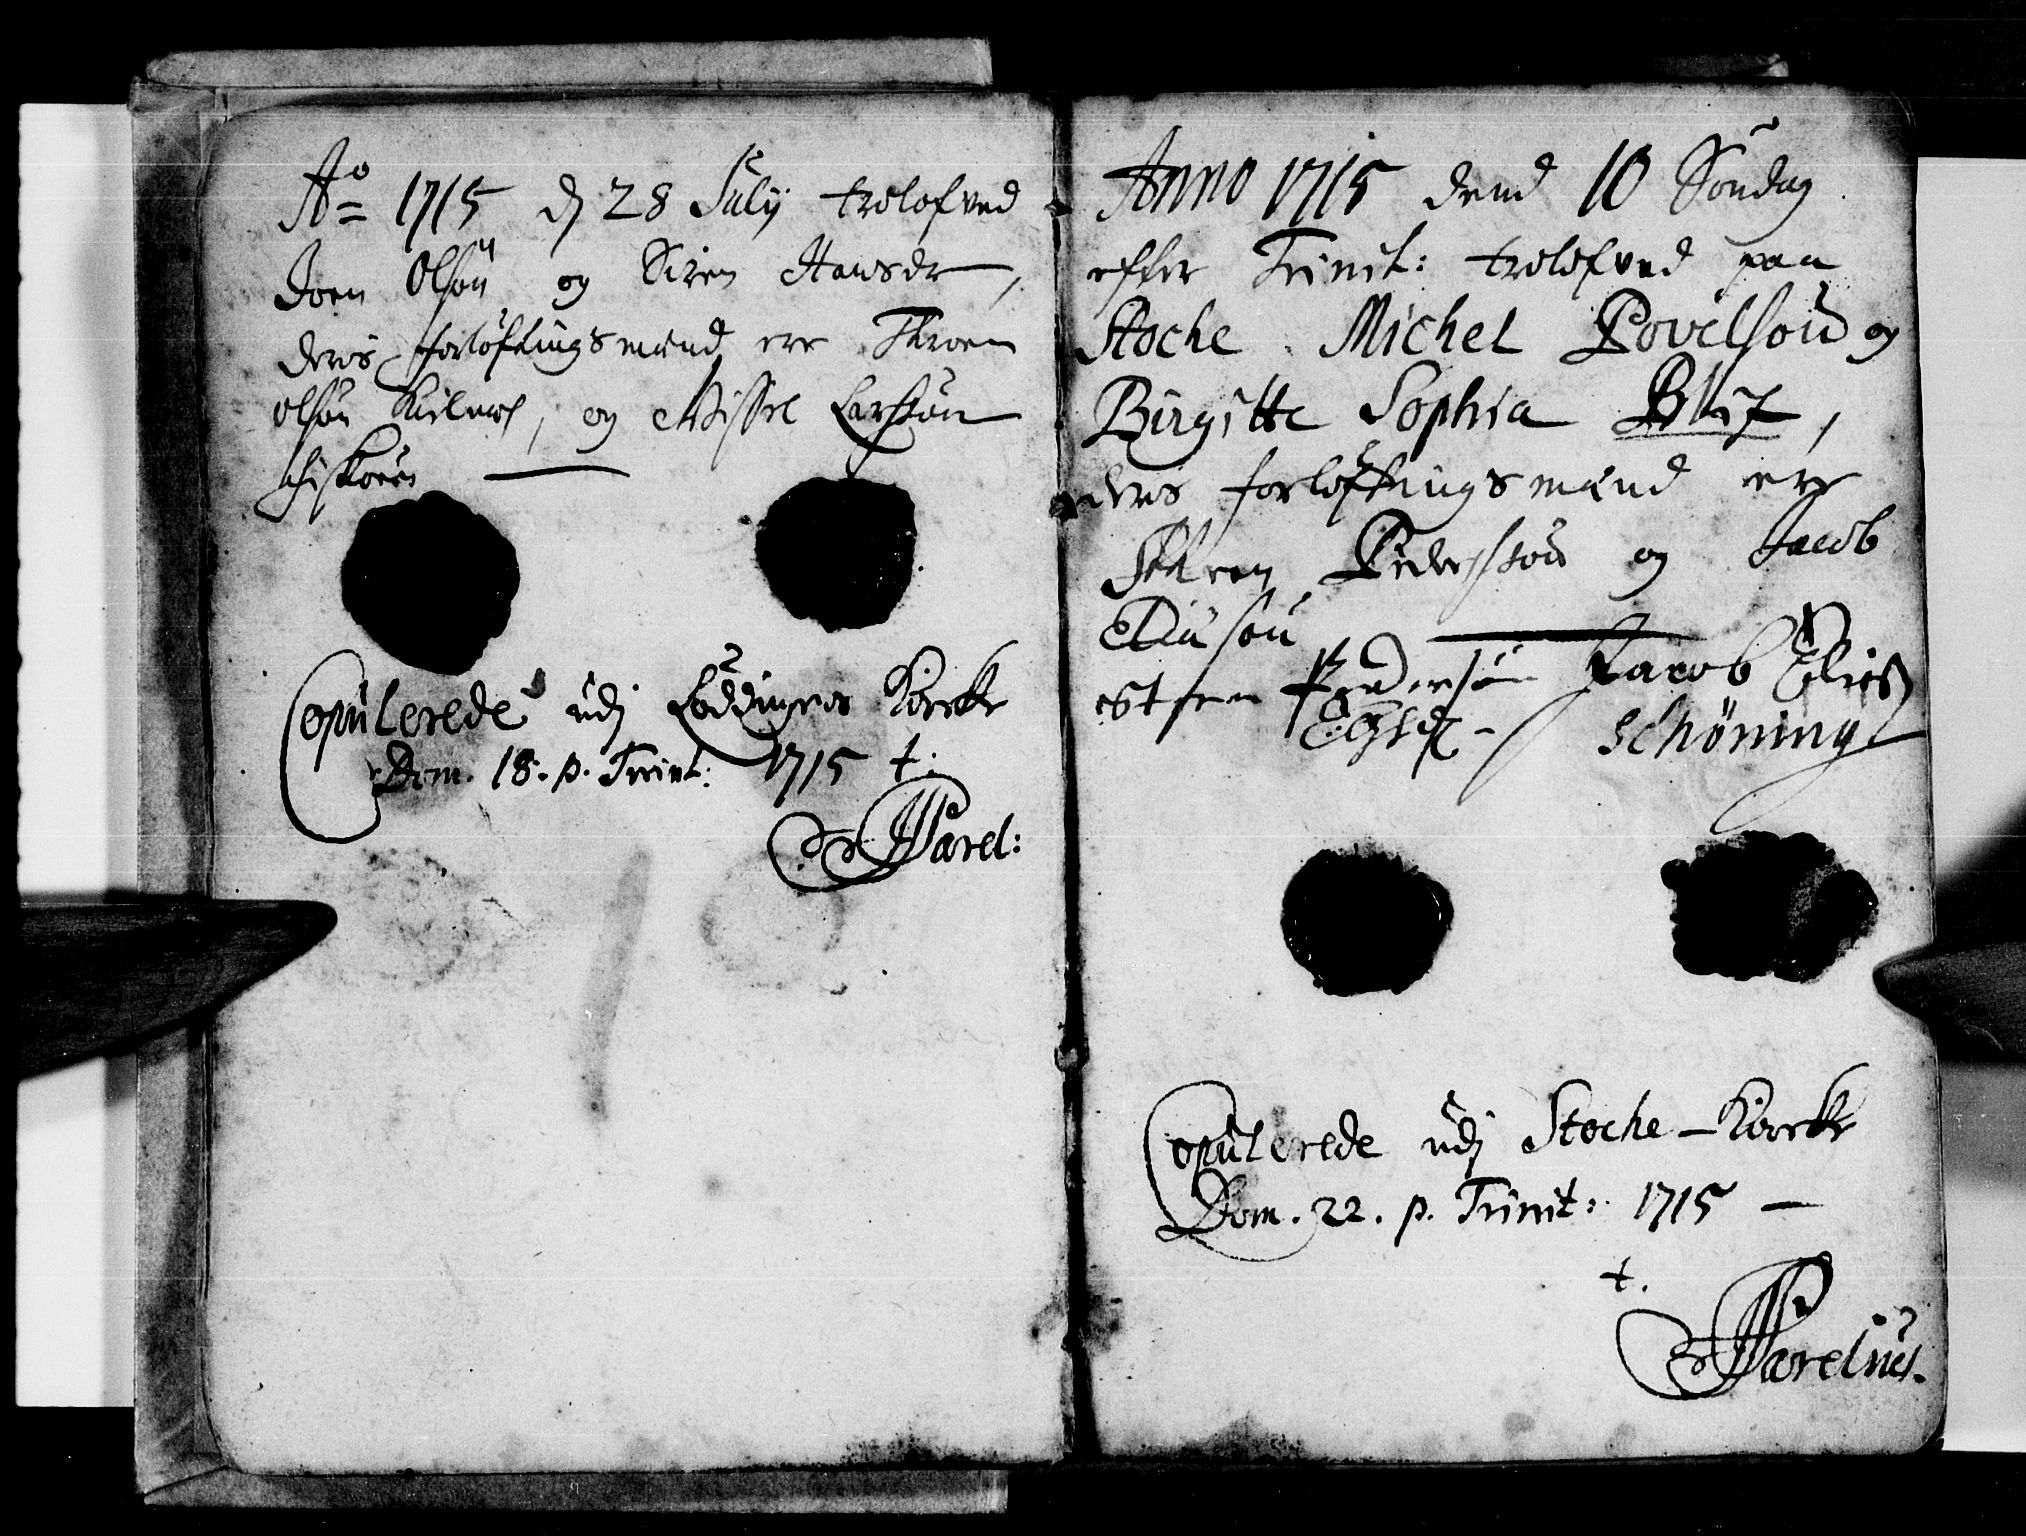 Ao 1715 d 28 Julij trolofved
Joen Olsøn og Siren Hansdr,
deris forløftingsmænd ere
olsøn, og Nissel Larssøn
Copulerede udj Løddinges Kircke
Dom. 18. p. Trinit: 1715 t.
Parel:
Anno 1715 dend 10 Søndag
effter Trinit: trolofved paa
Stoche Michel Povelsøn og
Birgitte Sophia Blix,
deris forløftingsmænd ere
Pedersøn og Jacob
Pedersøn Jacob
Schøning
Copulerede udj Stoche-Kircke
Dom. 22. p. Trinit: 1715 —
t.
Parelius.